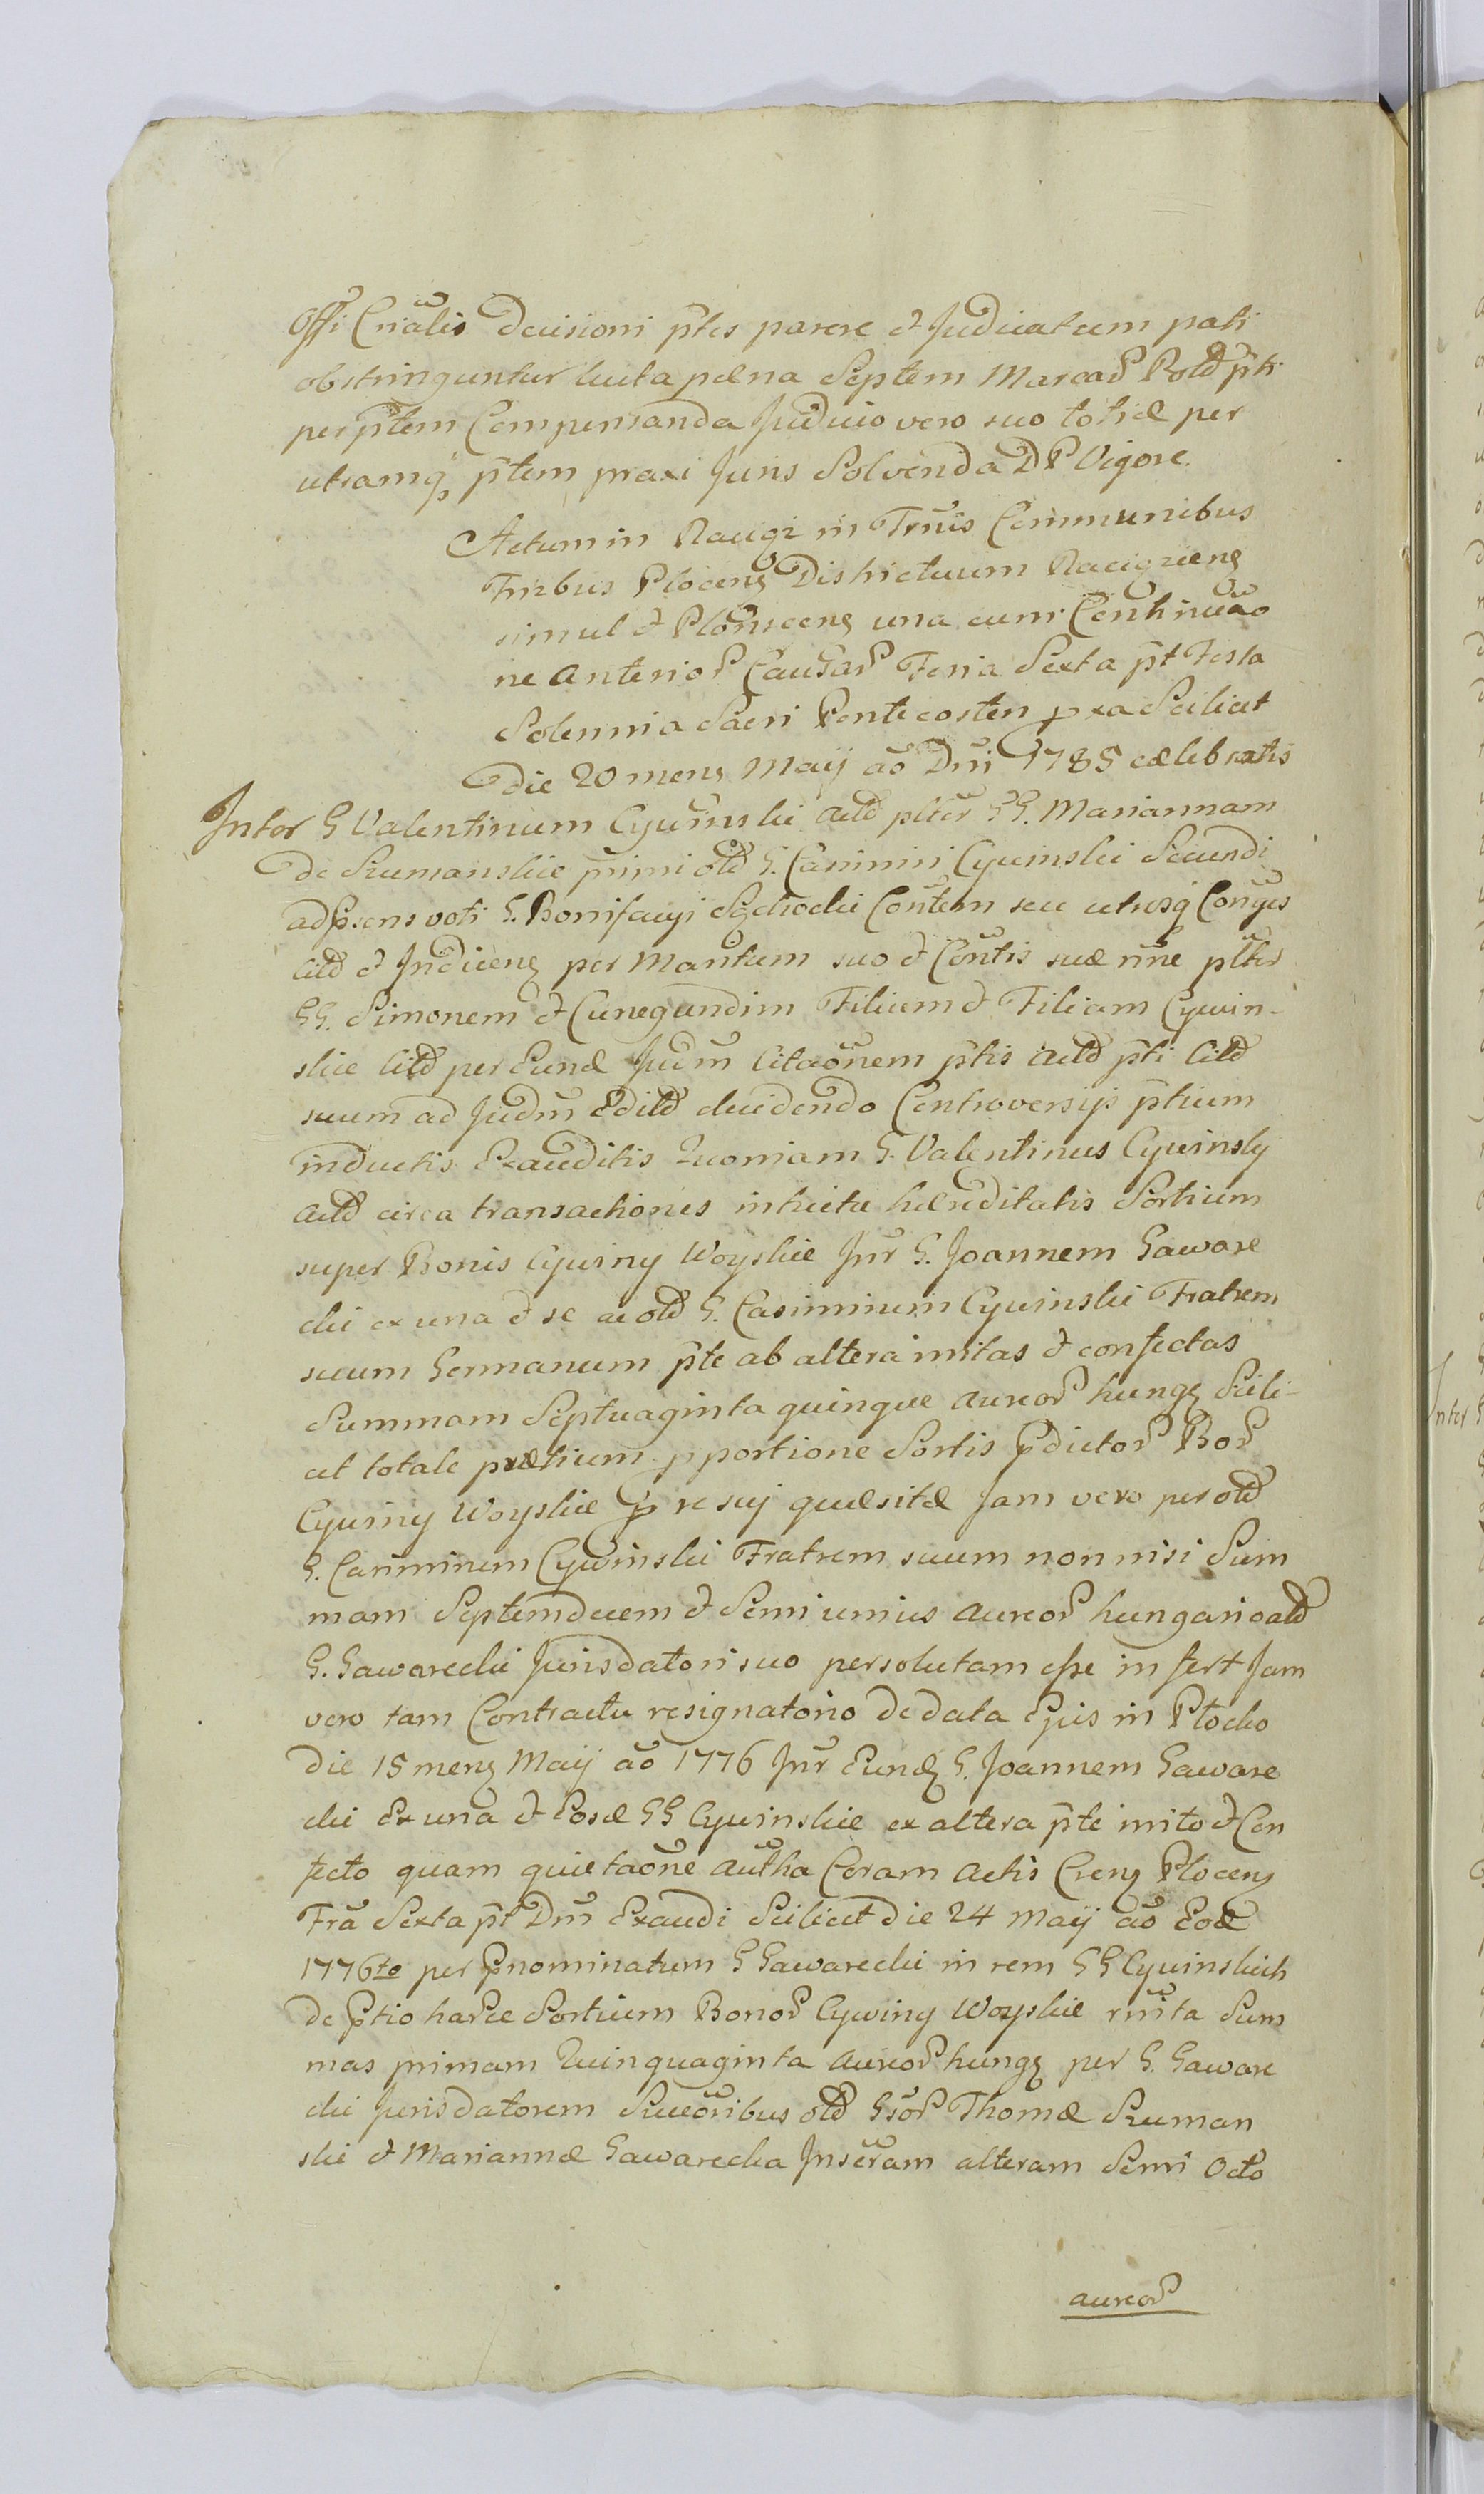 Offi Crialis Decisioni ptes parere & Judicatum pati
obstringuntur lucta pæna Septem Marcar Pold pti
per ptem Compensanda Judicio vero suo totid per
utramq ptem praxi Juris Solvenda DP Vigore.
Actum in Raciąż in Trnis Communibus
Trrbus Plocens Districtuum Raciążiens
simul & Plonscens una cum Continuao
ne Anterior Causar Feria Sexta pt Festa
Solennia Sacri Pentecosten pxa Scilicet
Die 20 mens Maij ao Dni 1785 cælebratis
Inter G Valentinum Cywinski Actd plter GG. Mariannam
De Szumanskie primi old G. Casimiri Cywinski Secundi
ad Psens voti G. Bonifacyi Sędrocki Contem seu utrusq Conges
Citd & Indicens per Maritum suo & Contis suæ nne plter
GG. Simonem & Cunegundim Filium & Filiam Cywin-
skie Citd per Eund Judm Citaonem ptis Actd pti Citd
suum ad Judm Editd decidendo Controversijs ptium
inductis Exauditis Quoniam G. Valentinus Cywinsky
Actd circa transactiones intuitu hæreditatis Sortium
super Bonis Cywiny Woyskie Intr G. Joannem Gaware
cki ex una & se ac old G. Casimirum Cywinski Fratrem
suum Germanum pte ab altera initas & confectas
Summam Septuaginta quinque aureor hung Scili-
cet totale prætium p portione Sortis pdictor Bor
Cywiny Woyskie p re sui quæsitæ Jam vero per old
G. Casimirum Cywinski Fratrem suum nonnisi Sum
mam Septemdecem & Semi unius aureor hungario ald
G. Gawarecki Jurisdatori suo persolutam esse infert Jam
vero tam Contractu resignatorio De data Ejus in Plocko
Die 15 mens Maij ao 1776 Intr Eund G. Joannem Gaware
cki Ex una & Eosd GG Cywinskie ex altera pte inito & Con
fecto quam quietaone Autha Coram Actis Crens Plocens
Fria Sexta pt Dm Exaudi Scilicet Die 24 Maij ao Eod
1776to per pnominatum G Gawarecki in rem GG Cywinskich
De ptio harce Sortium Bonor Cywiny Woyskie Sum
mas primam Quinquaginta aureor hung per G. Gaware
cki Jurisdatorem Succoribus old Gsor Thomæ Szuman
ski & Mariannæ Gawarecka Inscram alteram Semi Octo
aureor